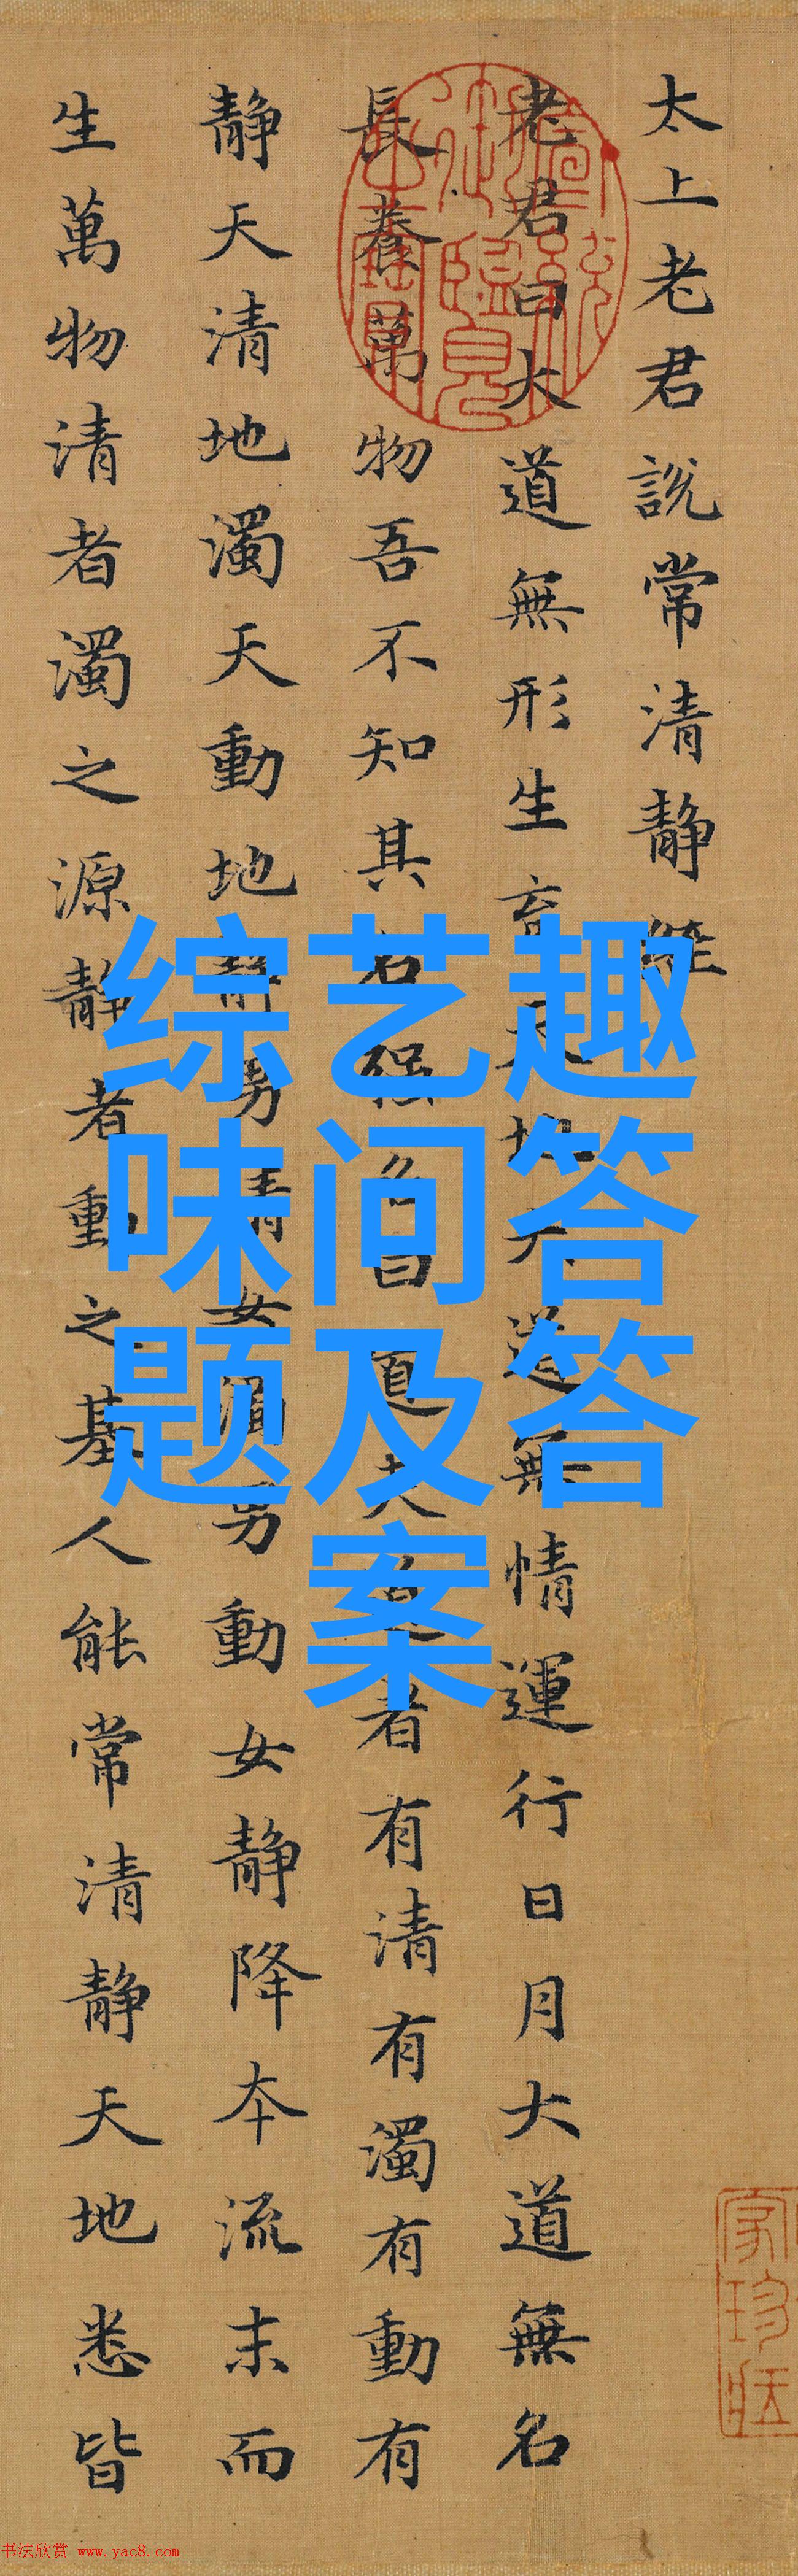 太上老君說常清静經
老君曰大道無形生育天地大道無情運行日月大道無名
長養萬物吾不知其名强名曰道夫道者有清有濁有動有
静天清地濁天動地静男清女濁男動女静降夲流末而
生萬物清者濁之源静者動之基人能常清静天地悉皆
宣統御覽之寶
综艺趣
味问答
题及答
案
书法欣赏 www.yac8.com